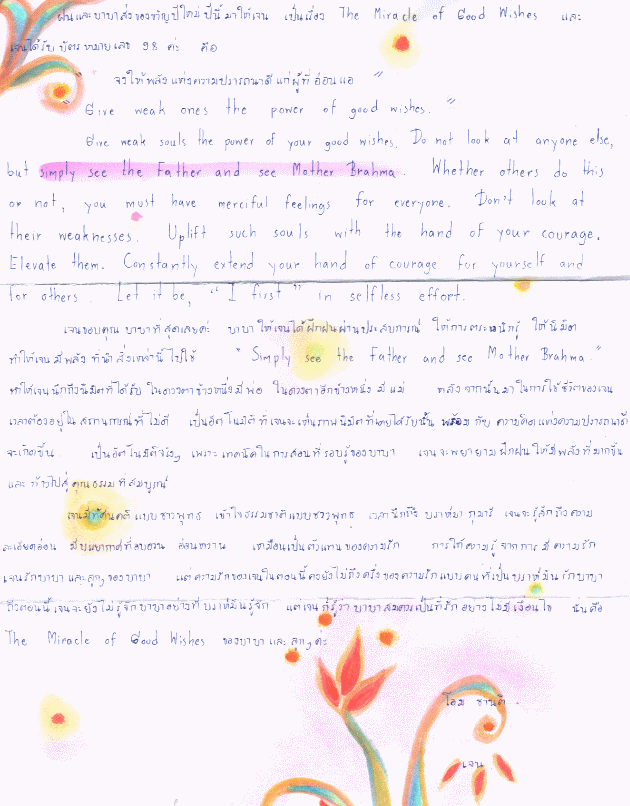 ฝนและบาบาส่งของขวัญปีใหม่ปีนี้มาให้เจน เป็นเรื่อง The Miracle of Good Wishes และ
เจนได้รับบัตรหมายเลข 98 ค่ะ คือ
" จงให้พลังแห่งความปรารถนาดีแก่ผู้ที่อ่อนแอ "
" Give weak ones the power of good wishes. "
Give weak souls the power of your good wishes. Do not look at anyone else,
but simply see the Father and see Mother Brahma. Whether others do this
or not, you must have merciful feelings for everyone. Don't look at
their weaknesses. Uplift such souls with the hand of your courage.
Elevate them. Constantly extend your hand of courage for yourself and
for others. Let it be, "I first" in selfless effort.
เจนขอบคุณบาบาที่สุดเลยค่ะ บาบาให้เจนได้ฝึกฝนผ่านประสบการณ์ ให้การตระหนักรู้ ให้นิมิต
ทำให้เจนมีพลังที่นำสิ่งเหล่านี้ไปใช้ "Simply see the Father and see Mother Brahma."
ทำให้เจนนึกถึงนิมิตที่ได้รับ ในดวงตาข้างหนึ่งมีพ่อ ในดวงตาอีกข้างหนึ่งมีแม่ หลังจากนั้นมาในการใช้ชีวิตของเจน
เวลาต้องอยู่ในสถานการณ์ที่ไม่ดี เป็นอัตโนมัติที่เจนจะเห็นภาพนิมิตที่เคยได้รับนั้น พร้อมกับความคิดแห่งความปรารถนาดี
จะเกิดขึ้น เป็นอัตโนมัติจริงๆ เพราะเทคนิคในการสอนที่รอบรู้ของบาบา เจนจะพยายามฝึกฝนให้มีพลังที่มากขึ้น
และก้าวไปสู่คุณธรรมที่สมบูรณ์
เจนมีทัศนคติแบบชาวพุทธ เข้าใจธรรมชาติแบบชาวพุทธ เวลานึกถึงบราห์มา กุมารี เจนจะรู้สึกถึงความ
ละเอียดอ่อน มีบรรยากาศที่อบอวน อ่อนหวาน เหมือนเป็นตัวแทนของความรัก การให้ความรู้จากการมีความรัก
เจนรักบาบาและลูกๆของบาบา แต่ความรักของเจนในตอนนี้คงยังไม่ถึงครึ่งของความรักแบบคนที่เป็นบราห์มินรักบาบา
ถึงตอนนี้เจนจะยังไม่รู้จักบาบาอย่างที่บราห์มินรู้จัก แต่เจนก็รู้ว่าบาบาสมควรเป็นที่รักอย่างไม่มีเงื่อนไข นั่นคือ
The Miracle of Good Wishes ของบาบาและลูกๆค่ะ
โอม ชานติ
เจน